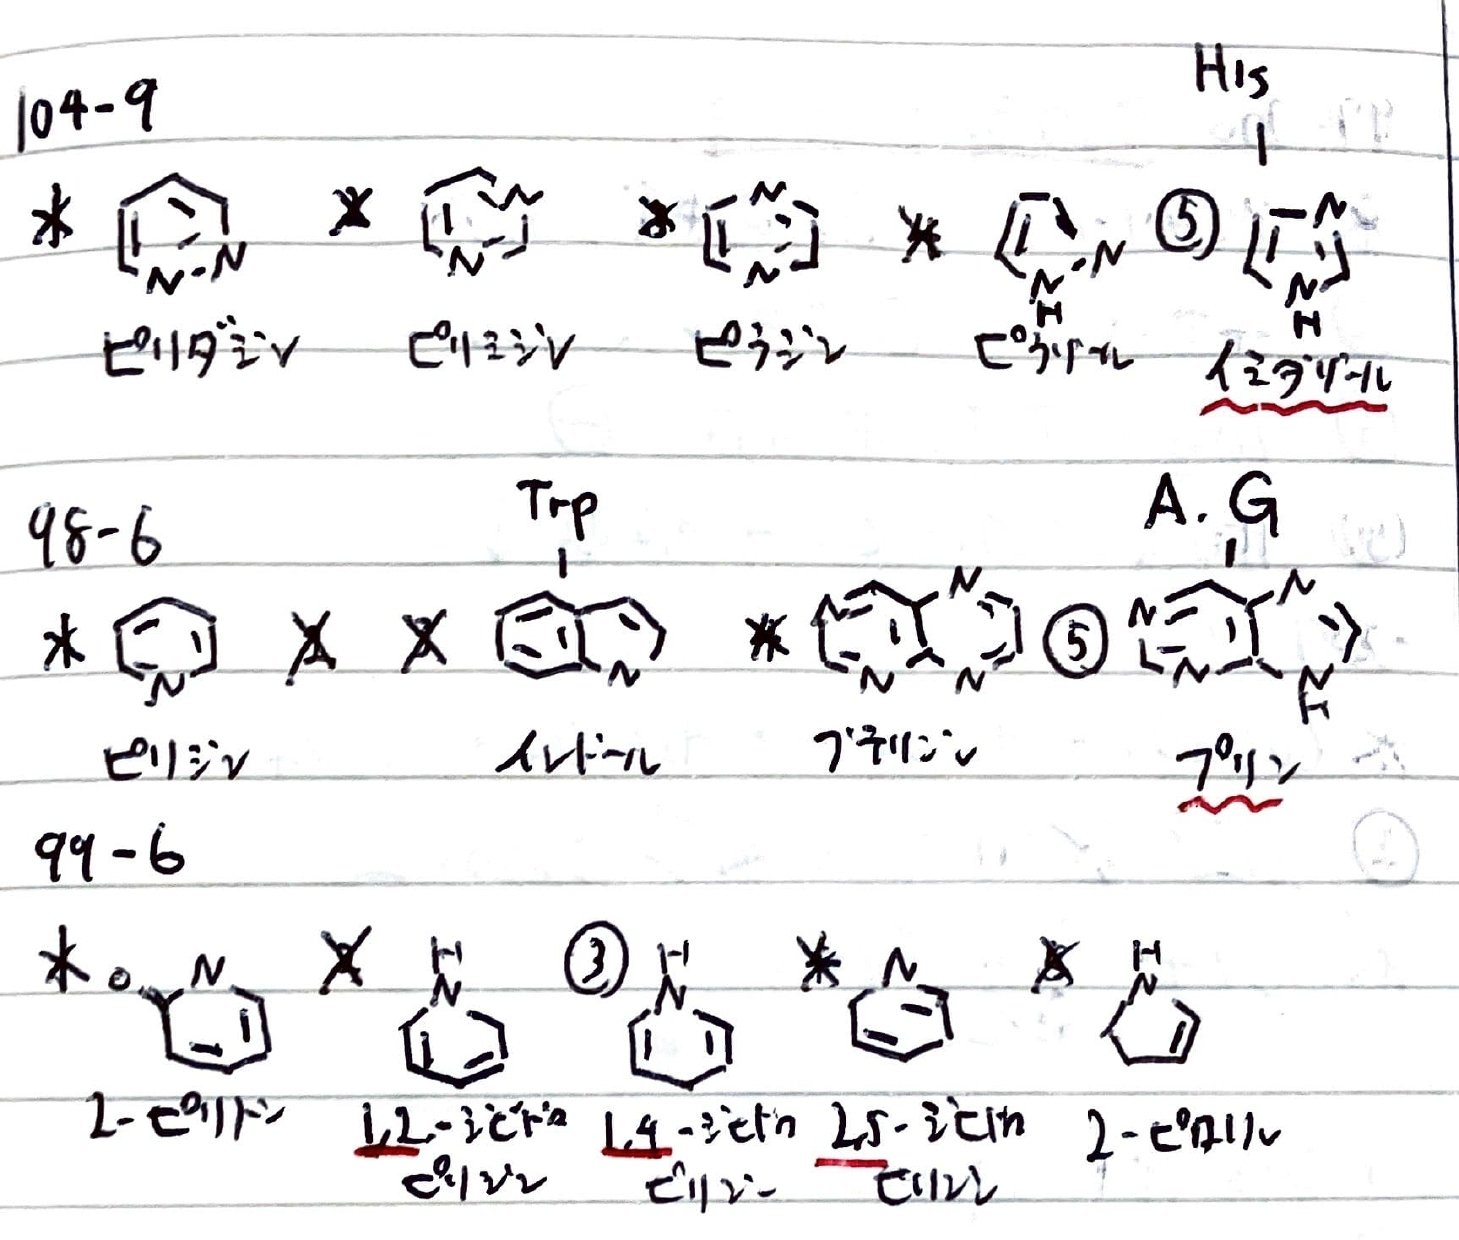 104-9
His
⑤
ピリダジン ピリミジン ピラジン ピラゾール イミダゾール
98-6
Trp A.G
⑤
ピリジン インドール プテリジン プリン
99-6
③
2-ピリドン 1,2-ジヒドロピリジン 1,4-ジヒドロピリジン 2,5-ジヒドロピリジン